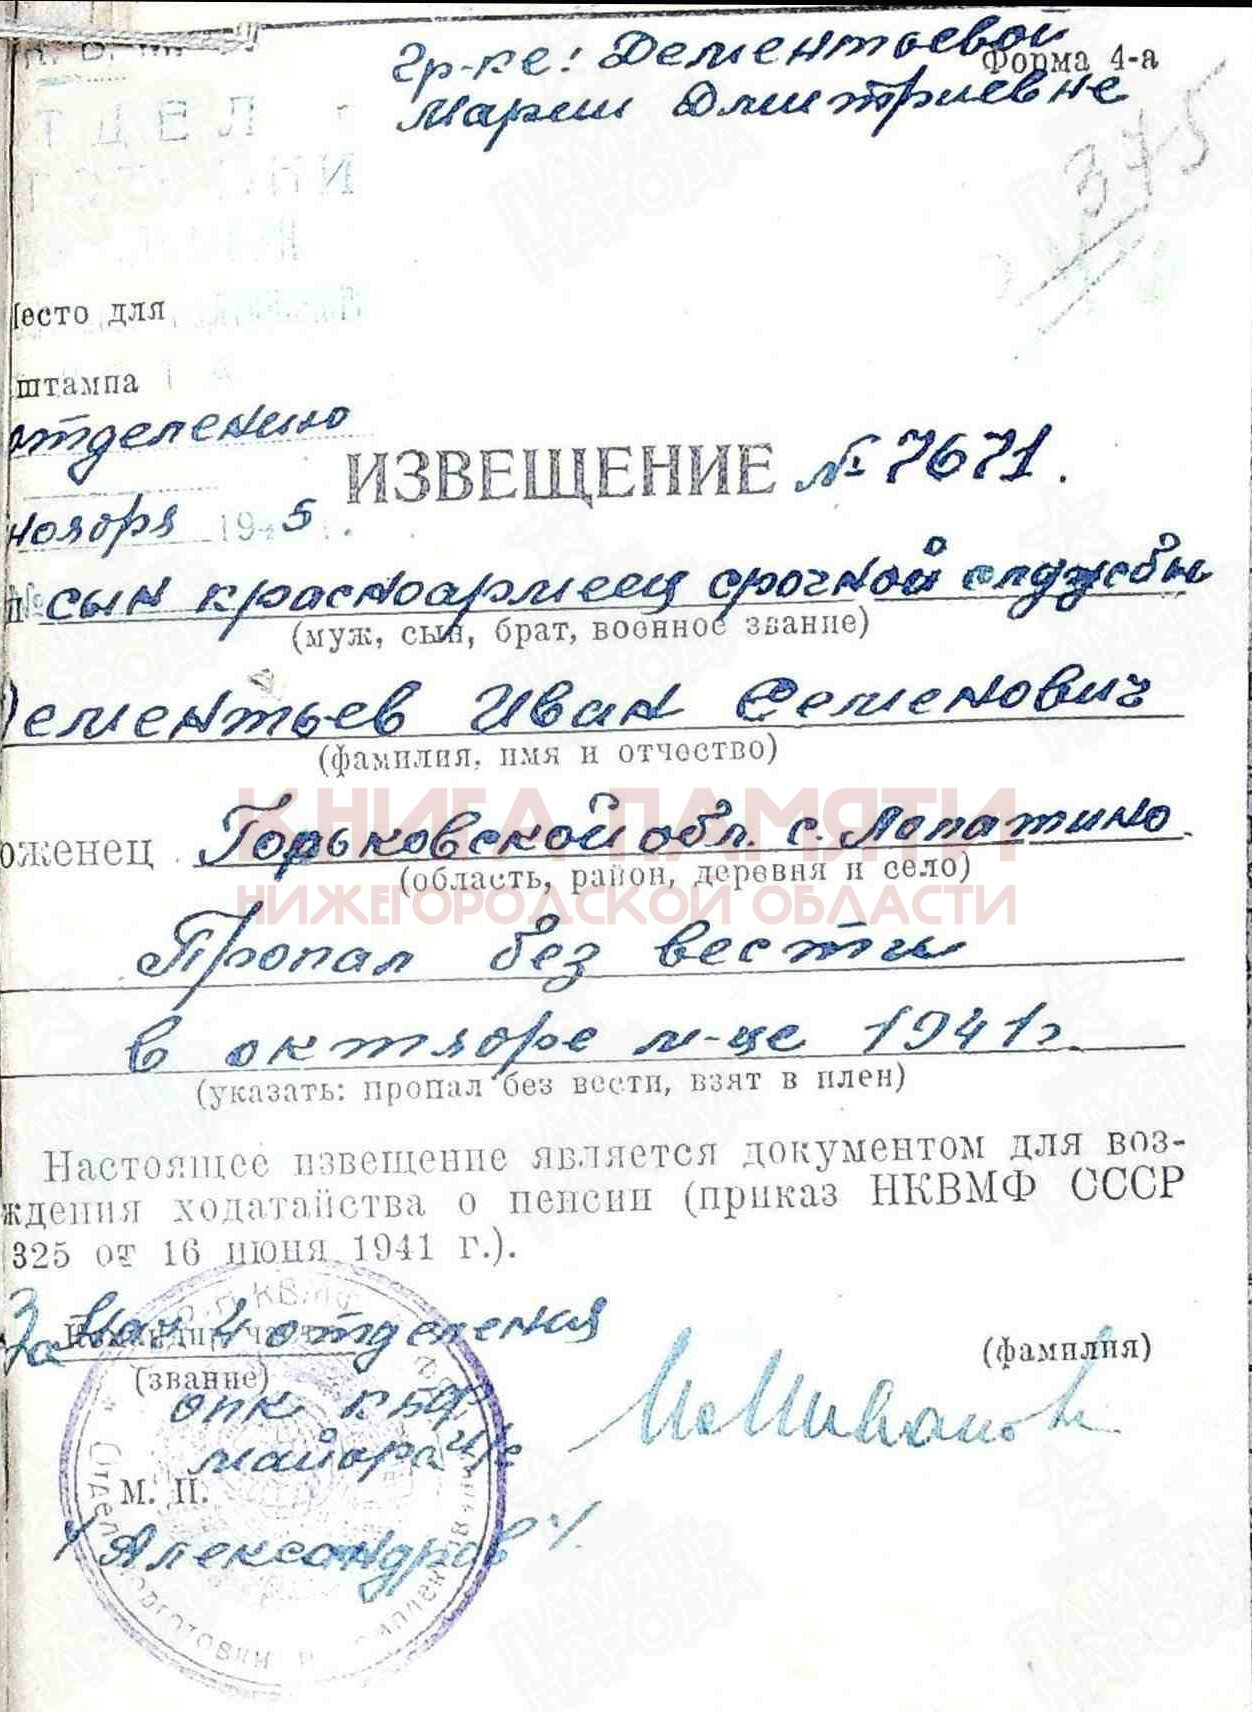 Гр-ке: Дементьевой
Форма 4-а
Марии Дмитриевне
375
Место для
штампа
отделению
ИЗВЕЩЕНИЕ № 7671.
ноября 1945 г.
сын красноармеец срочной службы
(муж, сын, брат, военное звание)
Дементьев Иван Семенович
(фамилия, имя и отчество)
КНИГА ПАМЯТИ
оженец Горьковской обл. с. Лопатино
(область, район, деревня и село)
НИЖЕГОРОДСКОЙ ОБЛАСТИ
Пропал без вести
в октябре м-це 1941г.
(указать: пропал без вести, взят в плен)
Настоящее извещение является документом для воз-
ждения ходатайства о пенсии (приказ НКВМФ СССР
325 от 16 июня 1941 г.).
За Нач 4 отделения
(фамилия)
(звание)
ОПК КБФ
майора
М. П.
/Александров/.